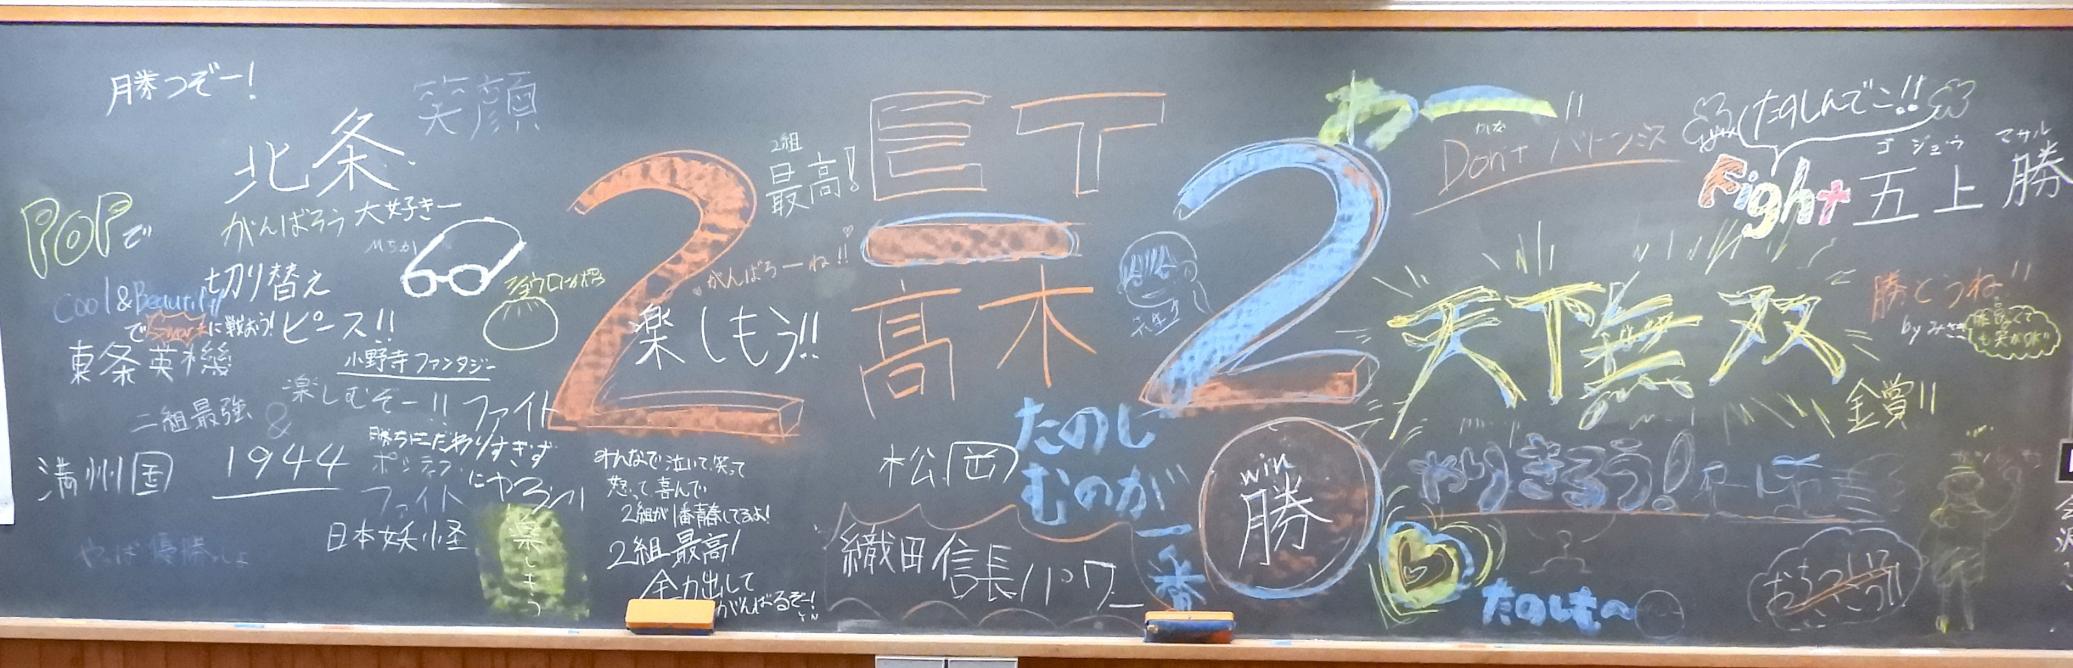 勝つぞー!
笑顔
北条
がんばろう 大好きー
POPで
切り替え
Cool & Beautiful
で Smartに戦おう!
ピース!!
東条英機
小野寺ファンタジー
楽しむぞー!!
ファイト
二組最強
&
1944
満州国
勝ちにこだわりすぎず
ポジティブ
にやろう!!
ファイト
日本妖怪
やっぱ優勝っしょ
楽しもう
2
2組
最高!
がんばろーね!!
楽しもう!!
みんなで泣いて、笑って
怒って、喜んで
2組が1番青春してるよ!
2組最高!
全力出して
がんばるぞー!
E T
一
高木
松岡
たのし
むのが
一番
織田信長パワー
2
win
勝
わー!!
かな
Don't
くたのしんでこ!!
Fight
ゴジョウ マサル
五上 勝
天下無双
勝とうね!!
金賞!!
やりきろう!
たのしむ〜
おちついて
いこう!!